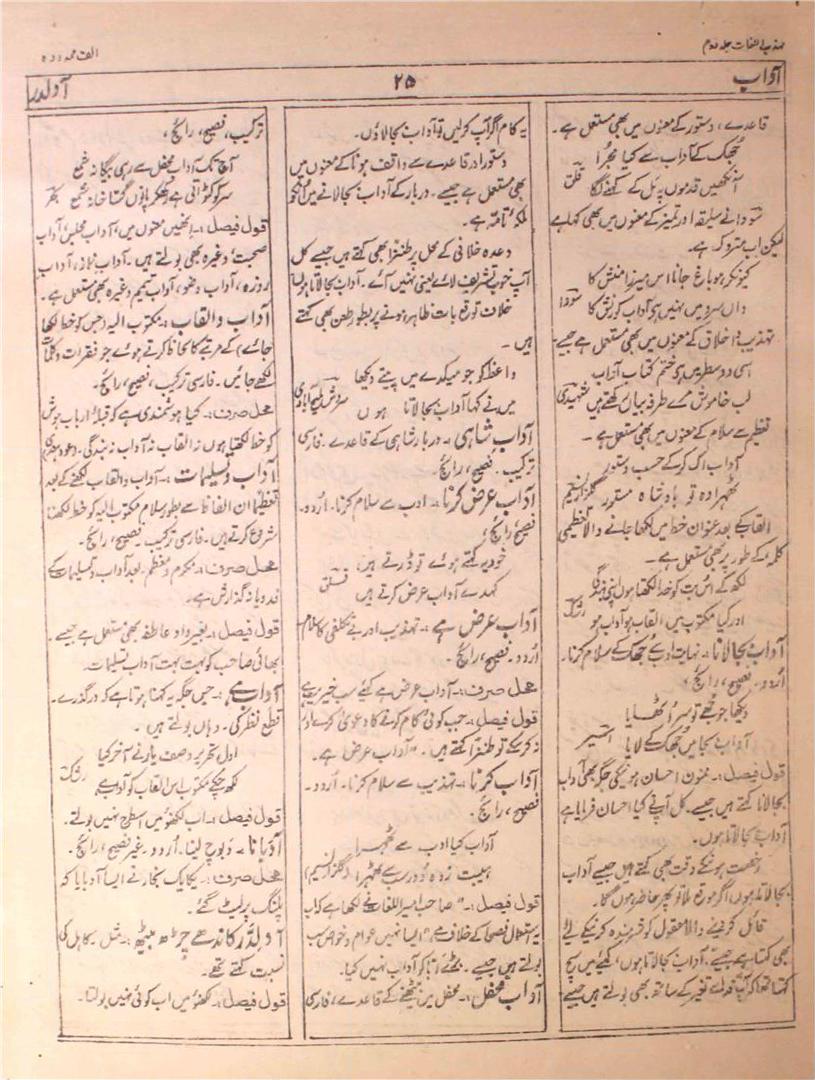 مہذب اللغات جلد دوم
الف ممدودہ
آداب
۲۵
آ دلدر
قاعدے، دستور کے معنوں میں بھی مستعمل ہے۔
جھک کے آداب سے کیا مجرا
آنکھیں قدموں پہ مل کے کہنے لگا
قلق
سودا نے سلیقہ اور تمیز کے معنوں میں بھی کہا ہے
لیکن اب متروک ہے۔
کیونکر ہو باغ جانا اس میرزا منش کا
واں سرو میں نہیں ہے آداب کورنش کا
سودا
تہذیب و اخلاق کے معنوں میں بھی مستعمل ہے جیسے
اسی دو سطر میں ہے ختم کتاب آداب
لب خاموش سے طرفہ بیاں رکھتے ہیں
شہیدی
تعظیم سے سلام کے معنوں میں بھی مستعمل ہے۔
آداب اک کر کے حسب دستور
ٹھہرا وہ تو بادشاہ مستور
گلزار نسیم
القاب کے بعد عنوان خط میں لکھا جانے والا تعظیمی
کلمہ کے طور پر بھی مستعمل ہے۔
لکھ کے اس بت کو خدا لکھتا ہوں اپنی بندگی
اور کیا مکتوب میں القاب ہو آداب ہو
رشک
آداب بجا لانا:۔ نہایت ادب سے جھک کے سلام کرنا۔
اُردو۔ فصیح، رائج،
دیکھا جو مجھے تو سر اٹھایا
آداب بجا میں جھک کے لایا
اسیر
قول فیصل:۔ ممنون احسان ہونے کی جگہ بھی آداب
بجا لانا کہتے ہیں جیسے۔ کل آپ نے کیا احسان فرمایا ہے
آداب بجا لاتا ہوں۔
رخصت ہونے کے وقت بھی کہتے ہیں جیسے آداب
بجا لاتا ہوں، اگر موقع ملا تو پھر حاضر ہوں گا۔
قائل کرنے والا معقول کو شرمندہ کرنے کے لئے
بھی کہتا ہے جیسے۔ آداب بجا لاتا ہوں، کہئے میں سچ
کہتا تھا کہ آپ قدرے تغیر کے ساتھ بھی بولتے ہیں جیسے
یہ کام اگر آپ کر لیں تو آداب بجا لاؤں۔
دستور اور قاعدے سے واقف ہونا کے معنوں میں
بھی مستعمل ہے جیسے۔ دربار کے آداب بجا لانے میں انکو
ملکۂ تامہ ہے۔
وعدہ خلافی کے محل پر طنزا بھی کہتے ہیں جیسے کل
آپ خوب تشریف لائے یعنی نہیں آئے۔ آداب بجا لاتا ہوں یا
خلاف توقع بات ظاہر ہونے پر بطور طعن بھی کہتے
ہیں۔
واعظ کو جو میکدے میں پیتے دیکھا
میں نے کہا آداب بجا لاتا ہوں
سروش ملیح آبادی
آداب شاہی:۔ دربار شاہی کے قاعدے۔ فارسی
ترکیب۔ فصیح، رائج۔
آداب عرض کرنا:۔ ادب سے سلام کرنا۔ اُردو۔
فصیح رائج،
خود یہ کہتے ہوئے تو ڈرتے ہیں،
کہدے آداب عرض کرتے ہیں
قلق
آداب عرض ہے:۔ تہذیب اور بے تکلفی کا سلام۔
اُردو۔ فصیح، رائج۔
محل صرف:۔ آداب عرض ہے کہیے سب خیریت ہے
قول فیصل:۔ جب کوئی کام کرنے کا دعویٰ کرے اور
نہ کر سکے تو طنزاً کہتے ہیں۔ "آداب عرض ہے۔
آداب کرنا:۔ تہذیب سے سلام کرنا۔ اُردو۔
فصیح، رائج۔
آداب کیا ادب سے ٹھہرا
ہیبت زدہ دور سب سے ٹھہرا
(گلزار نسیم)
قول فیصل:۔ "صاحب امیر اللغات نے لکھا ہے کہ اب
یہ استعمال فصحا کے خلاف ہے۔" ایسا نہیں عوام و خواص سب
بولتے ہیں جیسے۔ بیٹے! تم نے آداب نہیں کیا۔
آداب محفل:۔ محفل میں بیٹھنے کے قاعدے، فارسی
ترکیب، فصیح، رائج،
آج تک آداب محفل سے رہی بیگانہ شمع
سر کو کٹواتی ہے رکھکر پاؤں گستاخانہ شمع
قول فیصل:۔ انھیں معنوں میں آداب مجلس، آداب
صحبت، وغیرہ بھی بولتے ہیں۔ آداب نماز، آداب
روزہ، آداب وضو، آداب تیمم وغیرہ بھی مستعمل ہے۔
آداب و القاب:۔ مکتوب الیہ (جس کو خط لکھا
جائے) کے مرتبے کا لحاظ کرتے ہوئے جو فقرات و کلمات
لکھے جائیں۔ فارسی ترکیب، فصیح، رائج۔
محل صرف:۔ کیا ہوشمندی ہے کو قبلۂ ارباب ہوش
کو خط لکھتا ہوں نہ القاب نہ آداب نہ بندگی۔ (عود ہندی)
آداب و تسلیمات:۔ آداب و القاب لکھنے کے بعد
تعظیماً ان الفاظ سے بطور سلام مکتوب الیہ کو خط لکھنا
شروع کرتے ہیں۔ فارسی ترکیب۔ فصیح، رائج۔
محل صرف:۔ مکرم و معظم۔ بعد آداب و تسلیمات کے
فدویانہ گذارش ہے۔
قول فیصل:۔ بغیر واو عاطفہ بھی مستعمل ہے جیسے۔
بھائی صاحب کو بہت بہت آداب تسلیمات۔
آداب ہے:۔ جس جگہ یہ کہنا ہوتا ہے کہ درگذرے۔
قطع نظر کی۔ وہاں بولتے ہیں۔
اول تحریر وصف یار نے آخر کیا
لکھ چکے مکتوب اس القاب کو آداب ہے
رشک
قول فیصل:۔ اب لکھنؤ میں اس طرح نہیں بولتے۔
آدبانا:۔ دبوچ لینا۔ اُردو۔ غیر فصیح، رائج۔
محل صرف:۔ یکایک بخار نے ایسا آدبایا کہ
پلنگ پر لیٹ گئے۔
آ دلدّر کاندھے چڑھ بیٹھ:۔ مثل۔ کاہل کی
نسبت کہتے تھے۔
قول فیصل:۔ لکھنؤ میں اب کوئی نہیں بولتا۔